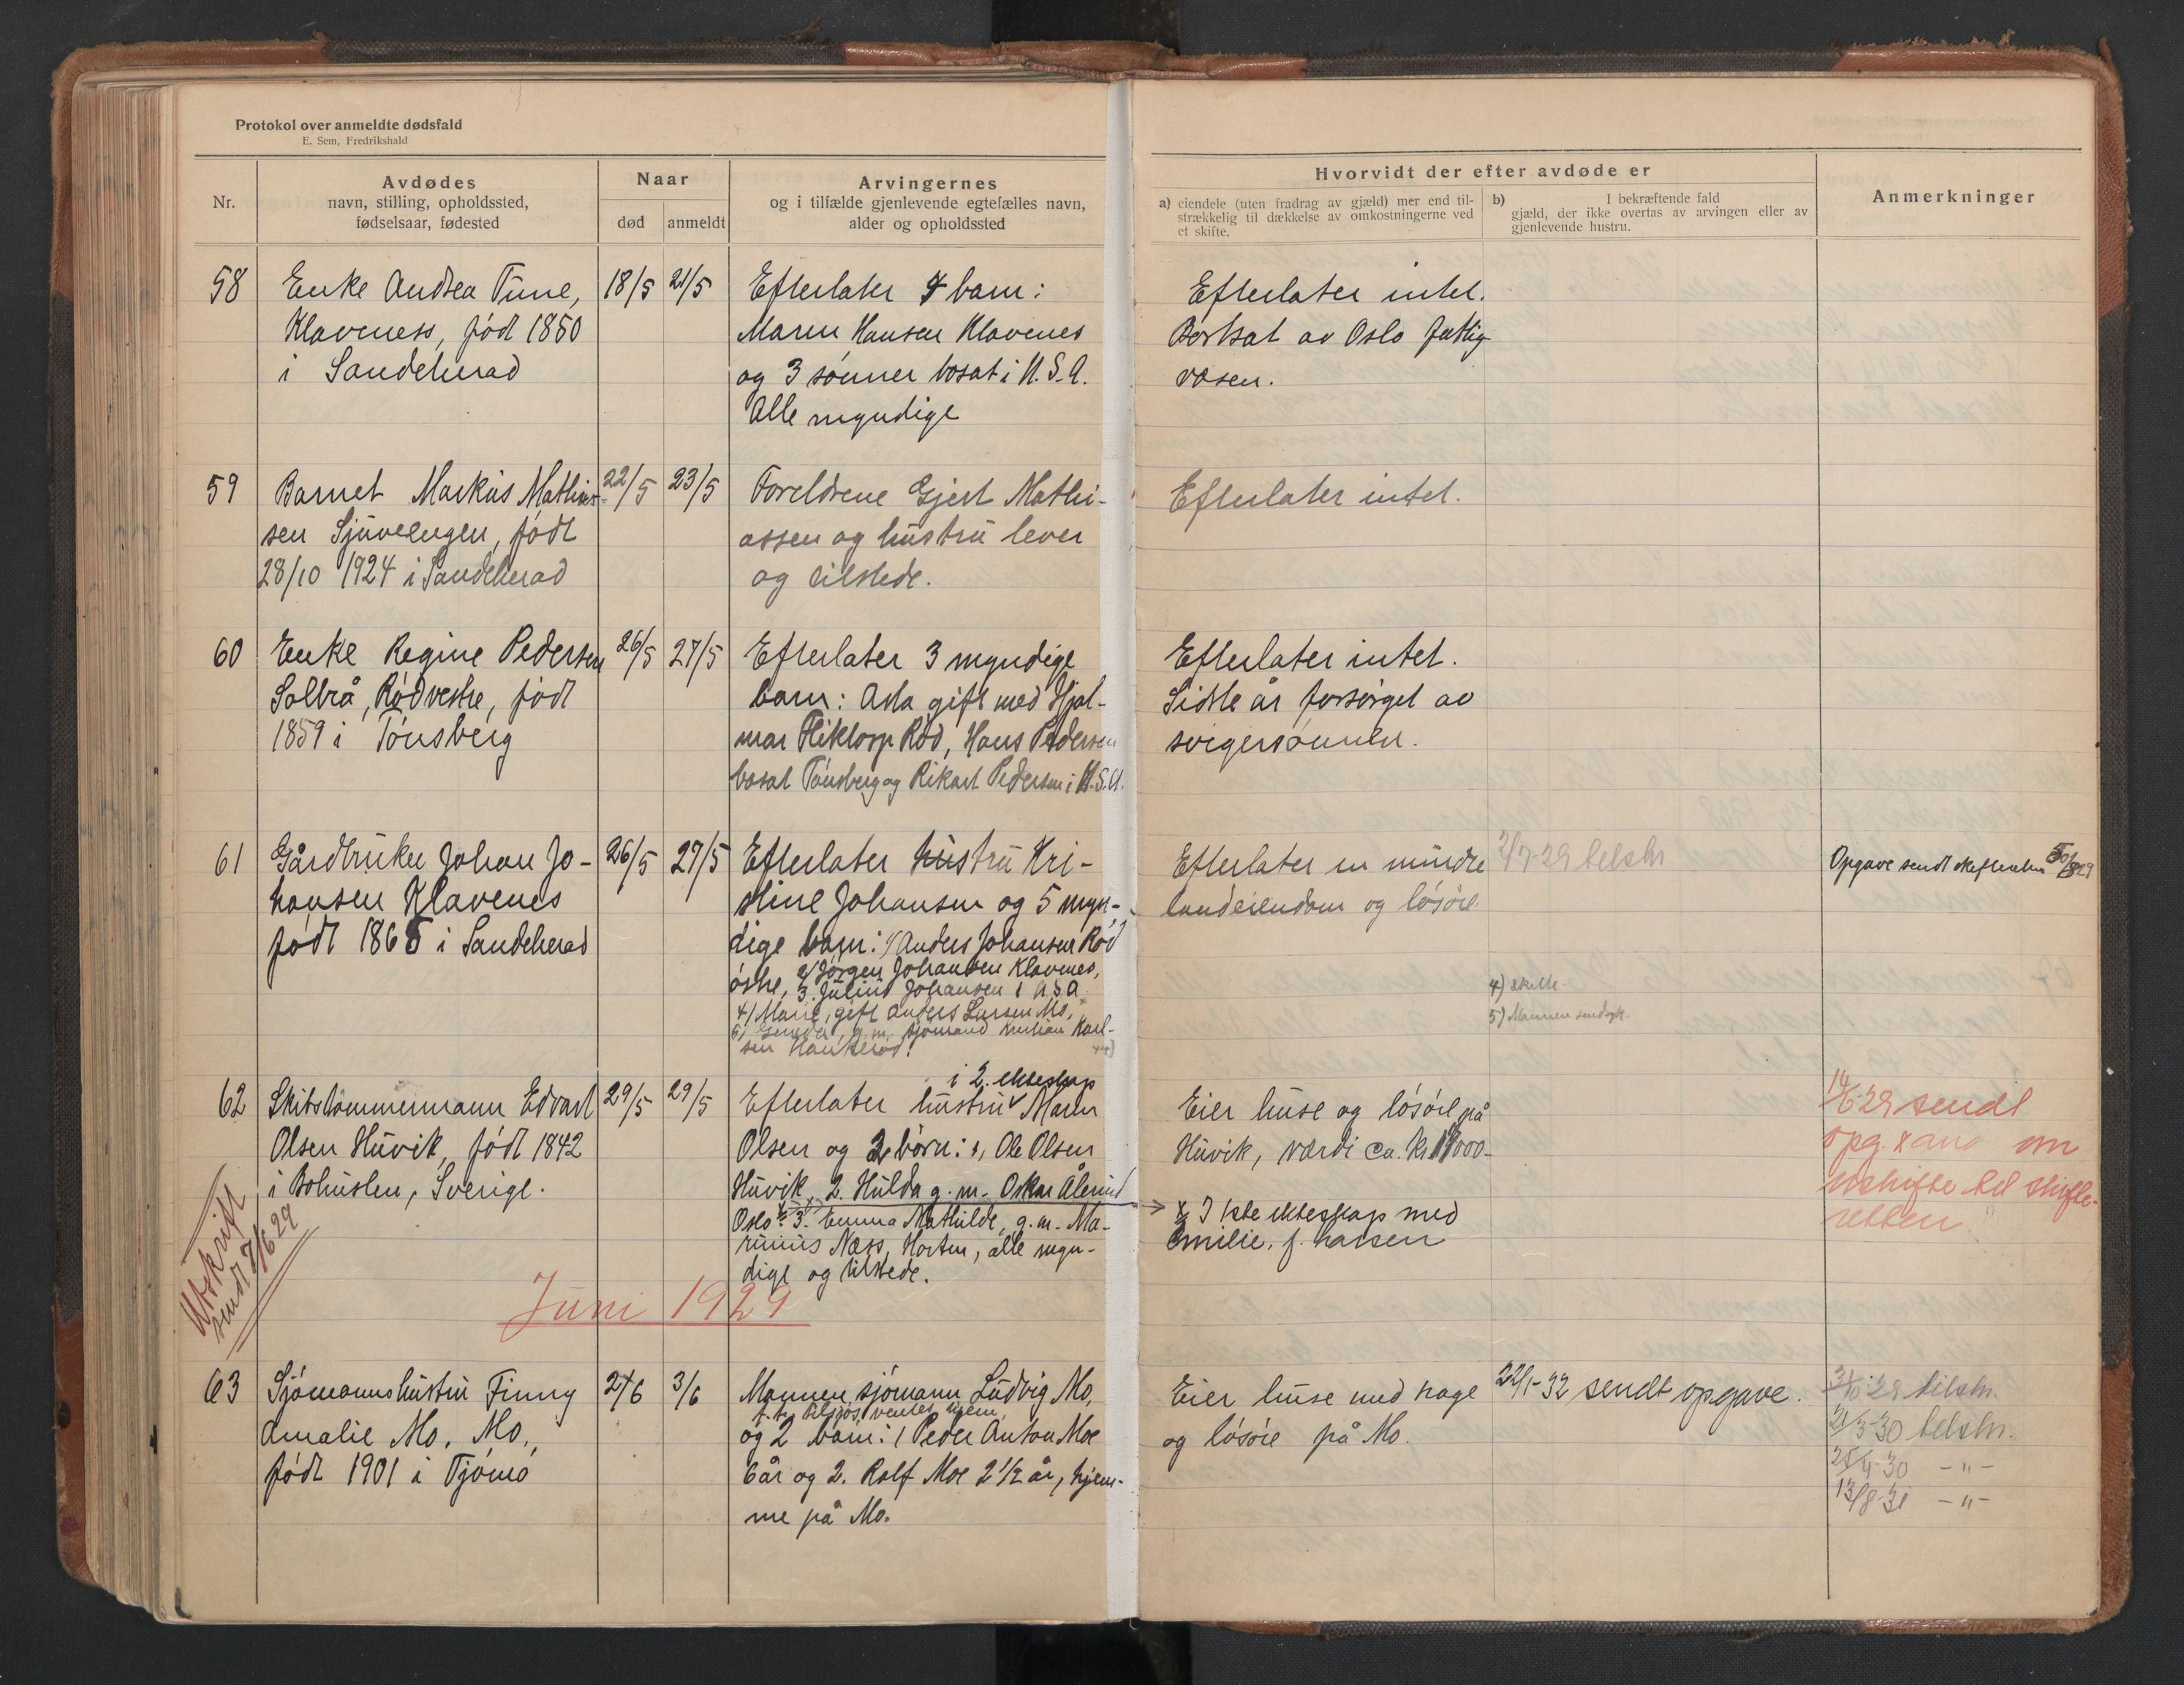 Protokol over anmeldte dødsfald
E. Sem, Fredrikshald
Nr.
Avdødes
navn, stilling, opholdssted,
fødselsaar, fødested
Naar
død
anmeldt
Arvingernes
og i tilfælde gjenlevende egtefælles navn,
alder og opholdssted
Hvorvidt der efter avdøde er
a) eiendele (uten fradrag av gjæld) mer end til-
strækkelig til dækkelse av omkostningerne ved
et skifte.
b) I bekræftende fald
gjæld, der ikke overtas av arvingen eller av
gjenlevende hustru.
Anmerkninger
58
Enke Andrea Tune,
Klaveness, født 1850
i Sandeherad
18/5
21/5
Efterlater 4 barn:
Maren Hansen Klavenes
og 3 sønner bosat i U.S.A.
Alle myndige
Efterlater intet.
Bortsat av Oslo fattig-
væsen.
59
Barnet Markus Mathias-
sen Sjuvengen, født
28/10 1924 i Sandeherad
22/5
23/5
Foreldrene Gjert Mathi-
assen og hustru lever
og tilstede.
Efterlater intet.
60
Enke Regine Pedersen
Solbrå, Rød vestre, født
1859 i Tønsberg
26/5
27/5
Efterlater 3 myndige
barn: Asta gift med Hjal-
mar Rød, Hans Pedersen
bosat Tønsberg og Rikart Pedersen i U.S.A.
Efterlater intet.
Sidste år forsørget av
svigersønnen.
61
Gårdbruker Johan Jo-
hansen Klavenes
født 1865 i Sandeherad
26/5
27/5
Efterlater hustru Kri-
stine Johansen og 5 myn-
dige barn: 1/ Anders Johansen Rød
østre, 2/ Jørgen Johansen Klavenes,
3. Julius Johansen i U.S.A.
4/ Marie, gift Anders Larsen Mo,
5/ g.m. sjømand Karl-
sen Haukerød.
Efterlater en mindre
landeiendom og løsøre.
2/7-29 tilskr.
4) skilte.
5) Mannen sindsyk.
Opgave sendt skifteretten
62
Skibstømmermann Edvart
Olsen Huvik, født 1842
i Bohuslen, Sverige.
29/5
29/5
i 2. ekteskap
Efterlater hustru Maren
Olsen og 3 børn: 1, Ole Olsen
Huvik, 2. Hulda g.m. Oskar
Oslo. 3. Emma Mathilde, g.m. Ma-
rinius Næss, Horten, alle myn-
dige og tilstede.
Eier huse og løsøre på
Huvik, værdi ca. kr.
x I 1ste ekteskap med
Emilie, f. Larsen
14/6-29 sendt
opg. om
uskifte til skifte-
retten
Utskrift
sendt 7/6 29
Juni 1929
63
Sjømannshustru Finny
Amalie Mo, Mo,
født 1901 i Tjømø
2/6
3/6
Mannen sjømann Ludvig Mo,
f.t. tilsjøs ventes hjem
og 2 barn: 1 Peder Anton Moe
6 år og 2. Rolf Moe 2 1/2 år, hjem-
me på Mo.
Eier huse med hage
og løsøre på Mo.
22/1-32 sendt opgave.
3/10-29 tilskr.
21/3-30 tilskr.
25/4-30 - " -
13/8-31 - " -